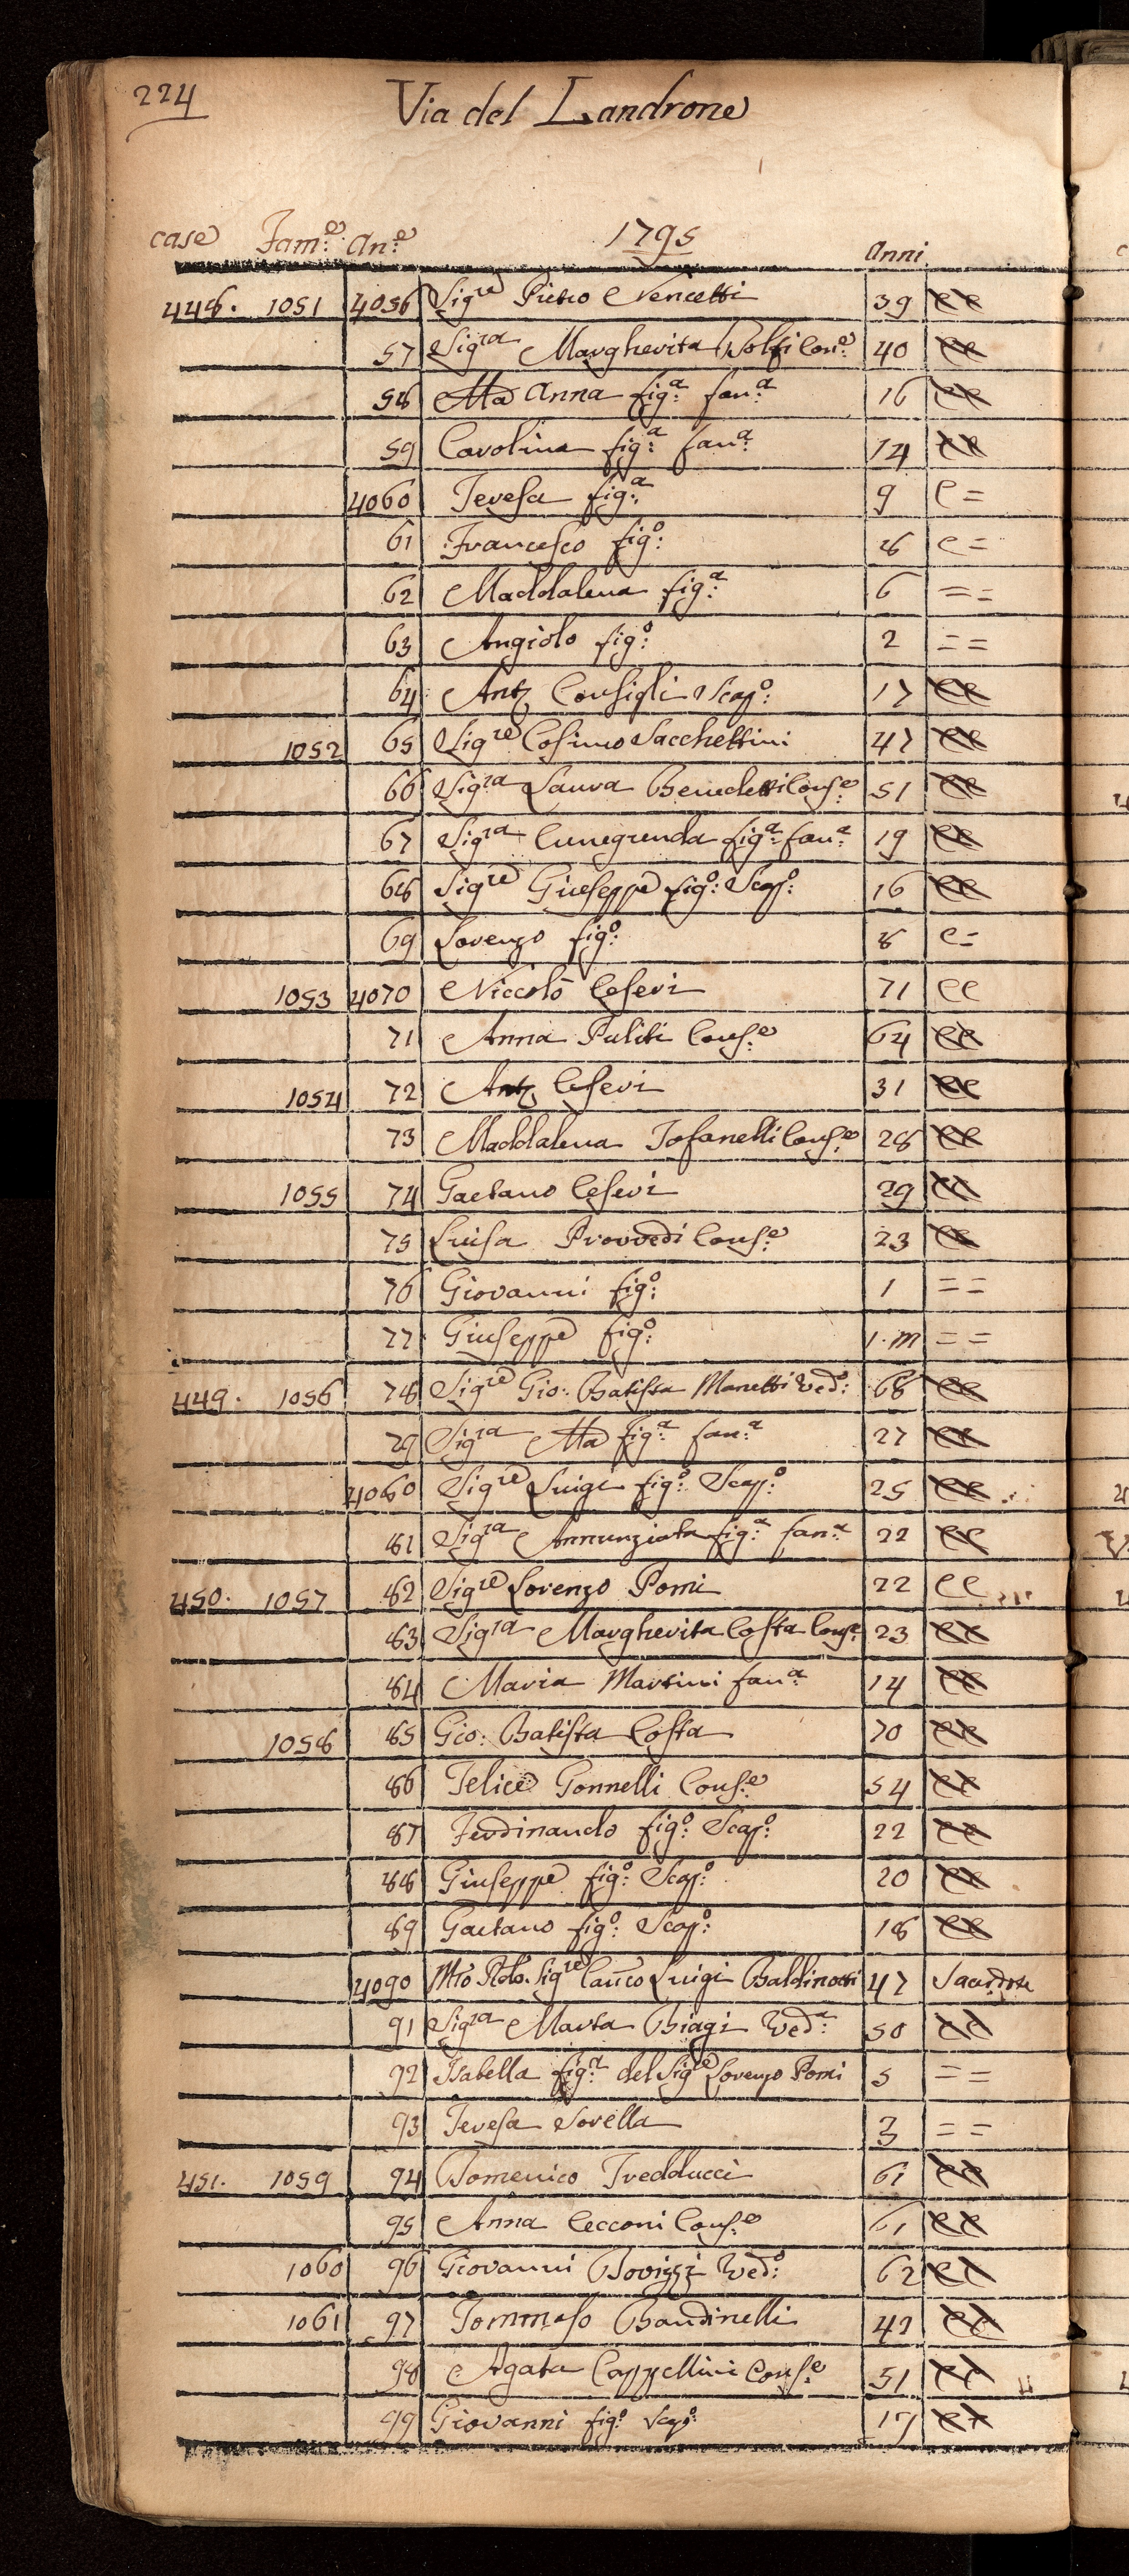 224
Via del Landrone
case Fam.e An.e 1795 Anni
448. 1051 4056 Sigre Pietro Nencetti 39 ee
57 Sigra Margherita Wolfi Con.e 40 ee
58 Ma Anna fig.a fan.a 16 ee
59 Carolina fig.a fan.a 14 ee
4060 Teresa fig.a 9 e =
61 Francesco fig.o 8 e =
62 Maddalena fig.a 6 = =
63 Angiolo fig.o 2 = =
64 Ant. Consigli Scap.o 17 ee
1052 65 Sigre Cosimo Sacchettini 47 ee
66 Sigra Laura Benedetti Cons.e 51 ee
67 Sigra Cunegunda fig.a fan.a 19 ee
68 Sigre Giuseppe fig.o Scap.o 16 ee
69 Lorenzo fig.o 8 e =
1053 4070 Niccolò Ceseri 71 ee
71 Anna Puliti Cons.e 64 ee
1054 72 Ant. Ceseri 31 ee
73 Maddalena Tofanelli Cons.e 28 ee
1055 74 Gaetano Ceseri 29 ee
75 Luisa Provvedi Cons.e 23 ee
76 Giovanni fig.o 1 = =
77 Giuseppe fig.o 1. m = =
449. 1056 78 Sigre Gio: Batista Manetti Ved.o 68 ee
79 Sigra Ma fig.a fan.a 27 ee
4080 Sigre Luigi fig.o Scap.o 25 ee
81 Sigra Annunziata fig.a fan.a 22 ee
450. 1057 82 Sigre Lorenzo Pomi 22 ee
83 Sigra Margherita Costa Cons.e 23 ee
84 Maria Martini fan.a 14 ee
1058 85 Gio: Batista Costa 70 ee
86 Felice Gonnelli Cons.e 54 ee
87 Ferdinando fig.o Scap.o 22 ee
88 Giuseppe fig.o Scap.o 20 ee
89 Gaetano fig.o Scap.o 18 ee
4090 Mto Rdo. Sigre Can.co Luigi Baldinotti 47 Sacerdote
91 Sigra Marta Biagi Ved.a 50 ee
92 Isabella fig.a del Sigre Lorenzo Pomi 5 = =
93 Teresa Sorella 3 = =
451. 1059 94 Domenico Fredducci 61 ee
95 Anna Cecconi Cons.e 61 ee
1060 96 Giovanni Ved.o 62 ee
1061 97 Tommaso Bandinelli 42 ee
98 Agata Cappellini Cons.e 51 ee
99 Giovanni fig.o Scap.o 17 ee